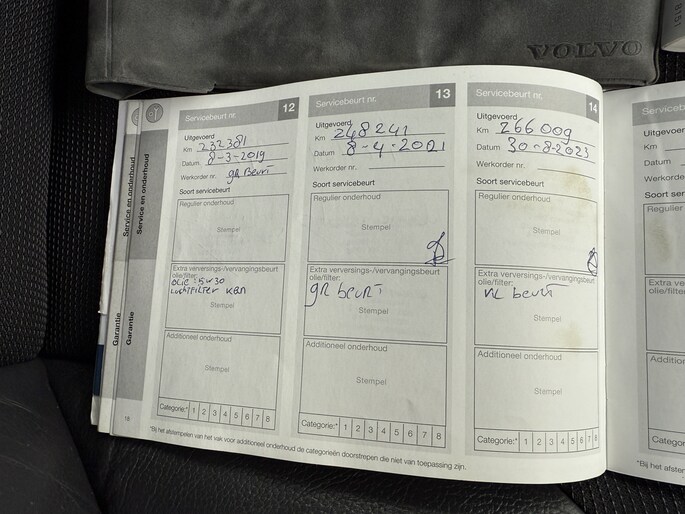 VOLVO
Service en onderhoud
Service en onderhoud
Garantie
Garantie
Servicebeurt nr. 12
Uitgevoerd
Km 232381
Datum 8-3-2019
Werkorder nr. gR Beurt
Soort servicebeurt
Regulier onderhoud
Stempel
Extra verversings-/vervangingsbeurt
olie/filter:
olie: 5w30
Luchtfilter K&N
Stempel
Additioneel onderhoud
Stempel
Categorie:* 1 2 3 4 5 6 7 8
Servicebeurt nr. 13
Uitgevoerd
Km 248241
Datum 8-4-2021
Werkorder nr.
Soort servicebeurt
Regulier onderhoud
Stempel
Extra verversings-/vervangingsbeurt
olie/filter:
gR beurt
Stempel
Additioneel onderhoud
Stempel
Categorie:* 1 2 3 4 5 6 7 8
Servicebeurt nr. 14
Uitgevoerd
Km 266009
Datum 30-8-2023
Werkorder nr.
Soort servicebeurt
Regulier onderhoud
Stempel
Extra verversings-/vervangingsbeurt
olie/filter:
KL beurt
Stempel
Additioneel onderhoud
Stempel
Categorie:* 1 2 3 4 5 6 7 8
18
*Bij het afstempelen van het vak voor additioneel onderhoud de categorieën doorstrepen die niet van toepassing zijn.
Servicebe
Uitgevoerd
Km
Datum
Werkorder
Soort ser
Regulier
Extra ver
olie/filter
Additione
Categori
*Bij het afsten